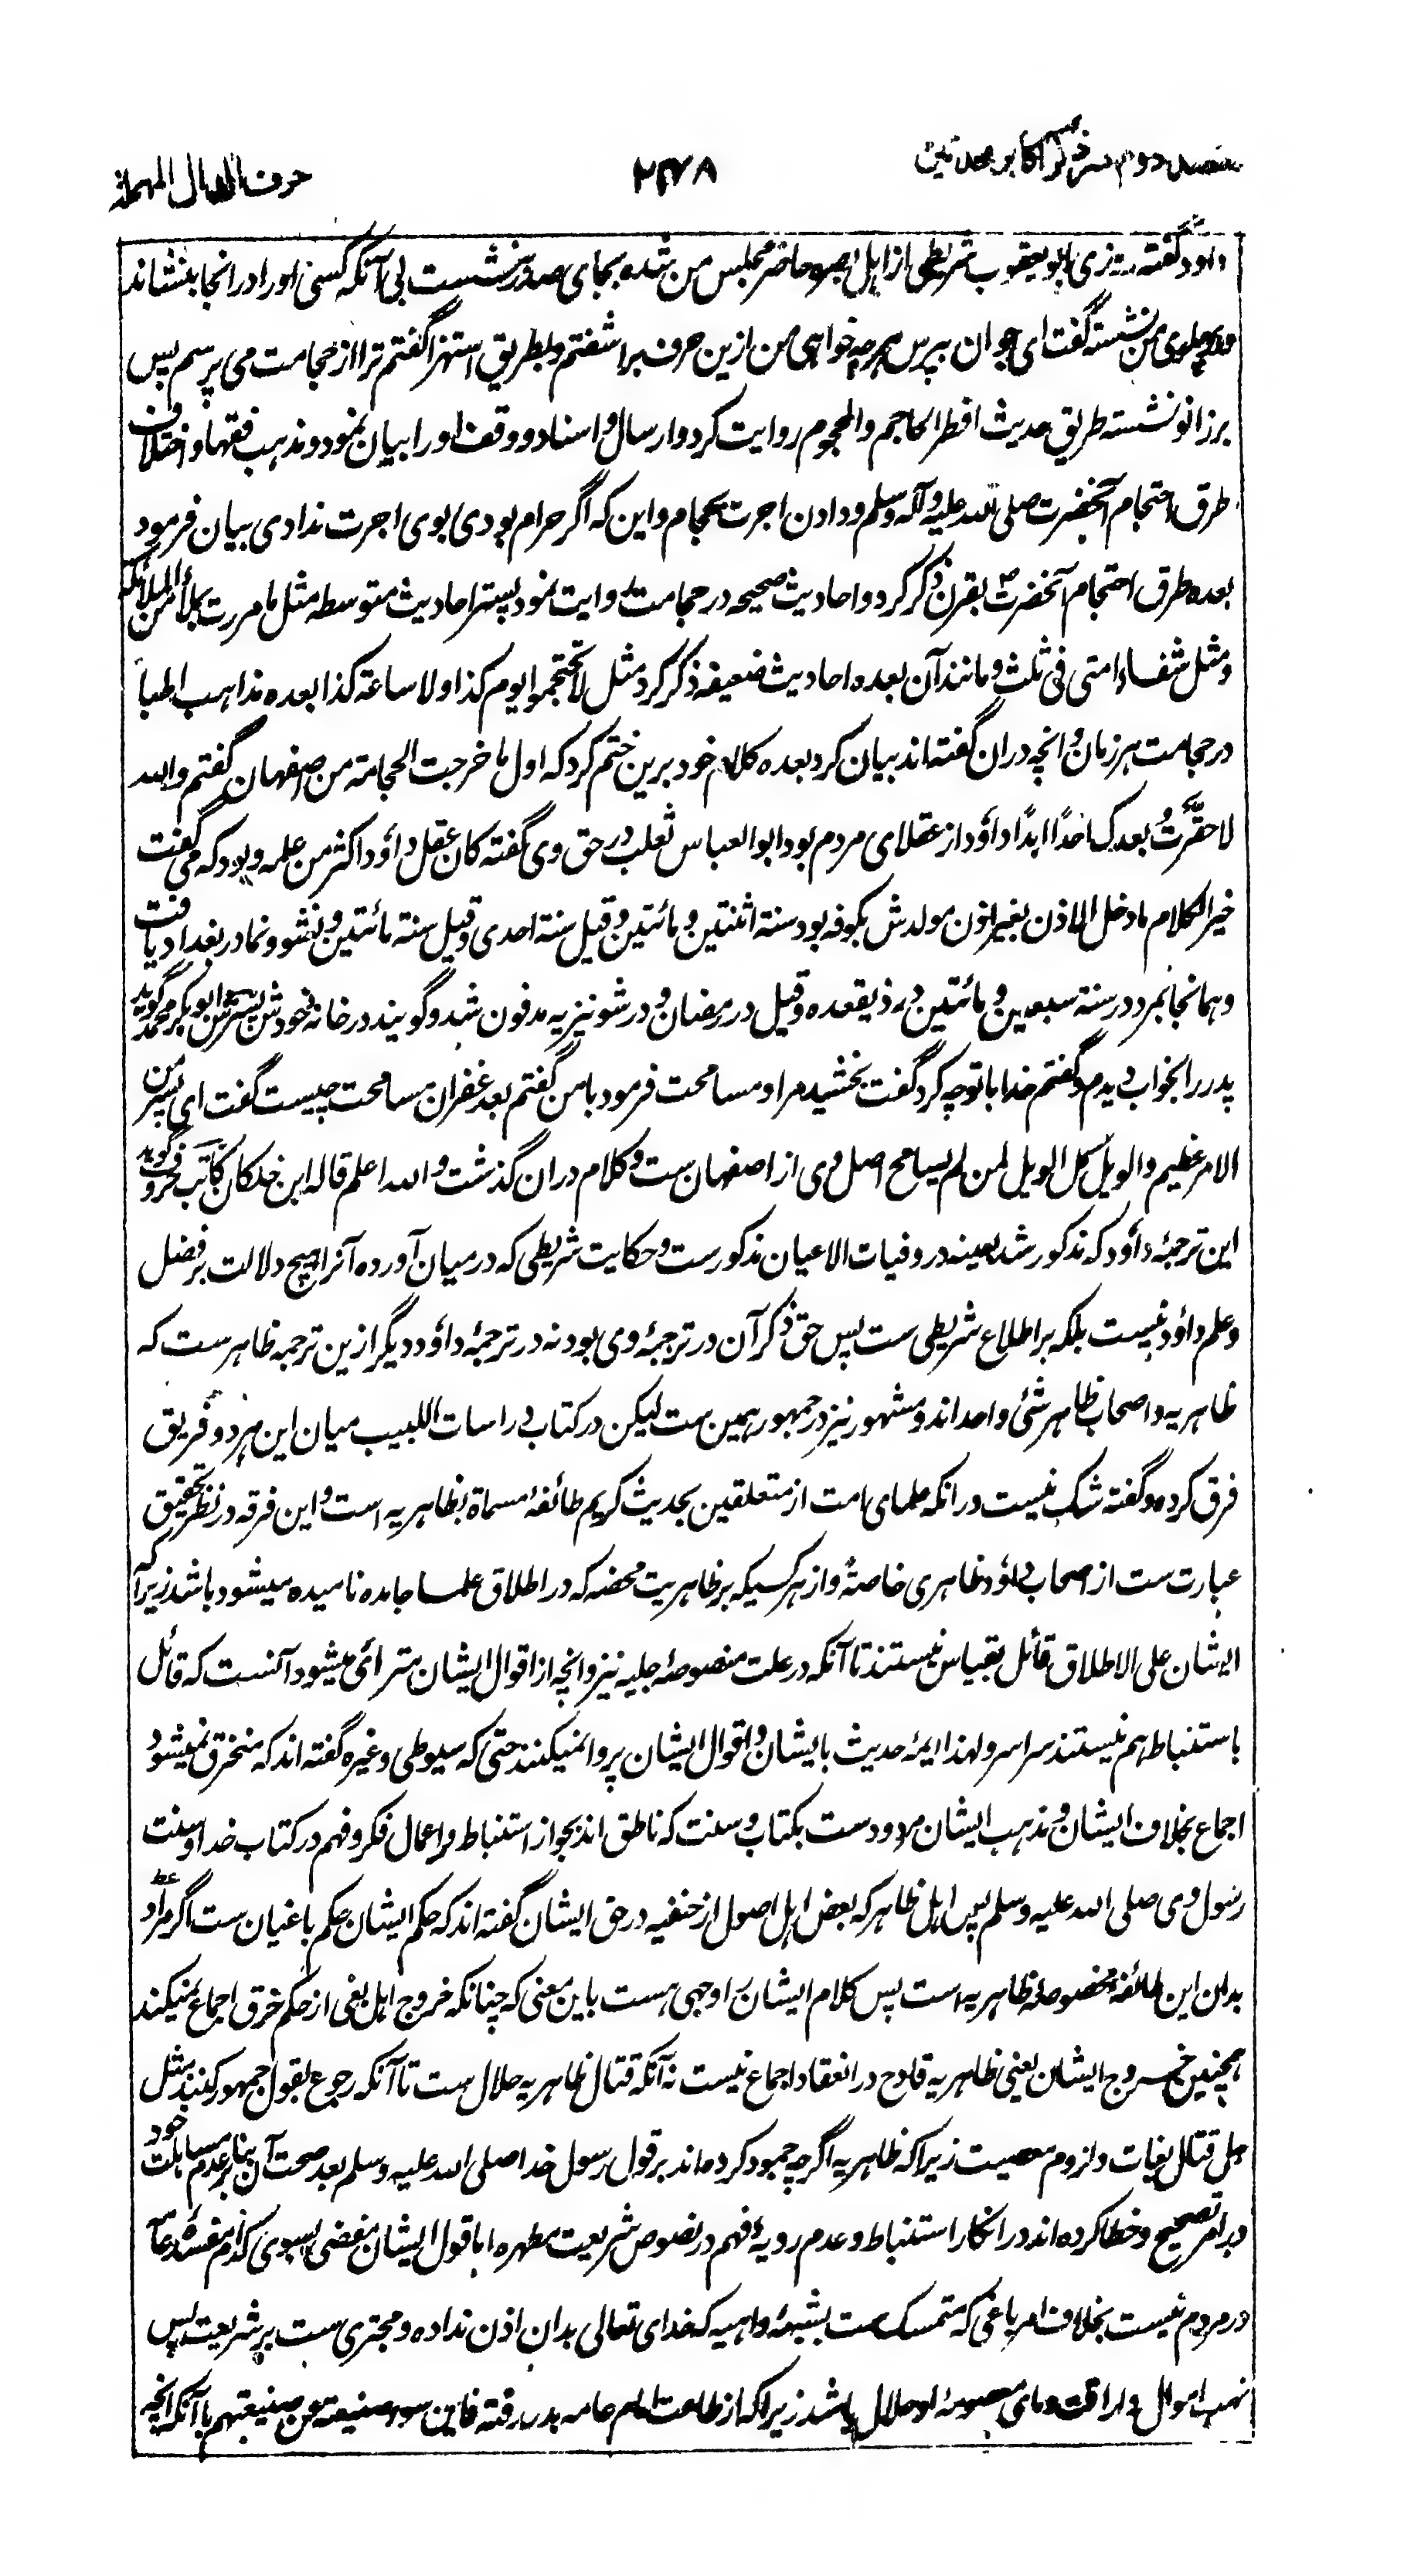 مقصد دوم در ذکر اکابر محدثین
۲۴۷۸
حرف الدال المهملة
داود گفته روزی ابو یعقوب شریطی از اهل بصره حاضر مجلس من شده بجای صدر نشست بی آنکه کسی او را در انجا بنشاند
و پهلوی من نشسته گفت ای جوان بپرس هرچه خواهی من ازین حرف براشفتم و بطریق استهزا گفتم ترا از حجامت می پرسم پس
بر زانو نشسته طریق حدیث افطر الحاجم والمحجوم روایت کرد و ارسال و اسناد و وقف او را بیان نمود و مذهب فقها و اختلاف
طرق احتجام آنحضرت صلی الله علیه و آله وسلم و دادن اجرت بحجام و این که اگر حرام بودی بوی اجرت ندادی بیان فرمود
بعده طرق احتجام آنحضرت بقرن ذکر کرد و احادیث صحیحه در حجامت روایت نمود پستر احادیث متوسطه مثل ما مررت بملأ من الملائکة
و مثل شفاء امتی فی ثلث و مانند آن بعده احادیث ضعیفه ذکر کرد مثل لا تحتجموا یوم کذا و لا ساعة کذا بعده مذاهب اطبا
در حجامت هر زمان و انچه دران گفته اند بیان کرد بعده کلام خود برین ختم کرد که اول ما خرجت الحجامة من اصفهان گفتم والله
لا حقرت بعدک احدًا ابدًا داؤد از عقلای مردم بود ابو العباس ثعلب در حق وی گفته کان عقل داؤد اکثر من علمه و بود که می گفت
خیر الکلام ما دخل الاذن بغیر اذن مولدش بکوفه بود سنة اثنتین و مائتین و قیل سنة احدی و قیل سنة مائتین و نشو و نما در بغداد یافت
و همانجا بمرد در سنة سبعین و مائتین در ذیقعده و قیل در رمضان و در شونیزیه مدفون شد و گویند در خانه خودش پسرش ابو بکر محمد گوید
پدر را بخواب دیدم و گفتم خدا با تو چه کرد گفت بخشید مرا و مسامحت فرمود با من گفتم بعد غفران مسامحت چیست گفت ای پسر من
الامر عظیم والویل کل الویل لمن لم یسامح اصل وی از اصفهان ست و کلام دران گذشت و الله اعلم قاله ابن خلکان کاتب حروف گوید
این ترجمۂ داؤد که مذکور شد بعینه در وفیات الاعیان مذکورست و حکایت شریطی که در میان آورده آنرا هیچ دلالت بر فضل
و علم داؤد نیست بلکه بر اطلاع شریطی ست پس حق ذکر آن در ترجمۂ وی بود نه در ترجمۂ داؤد و دیگر ازین ترجمه ظاهرست که
ظاهریه و اصحاب ظاهر شئ واحد اند و مشهور نیز در جمهور همین ست لیکن در کتاب دراسات اللبیب میان این هر دو فریق
فرق کرده و گفته شک نیست در انکه علمای امت از متعلقین بحدیث کریم طائفۂ مسماة بظاهریه است و این فرقه در نظر تحقیق
عبارت ست از اصحاب داؤد ظاهری خاصةً و از هر کسیکه بر ظاهریت محضه که در اطلاق علما جامده نامیده میشود باشد زیرا که
ایشان علی الاطلاق قائل بقیاس نیستند تا آنکه در علت منصوصۂ جلیه نیز و انچه از اقوال ایشان مترائی میشود آنست که قائل
باستنباط هم نیستند سراسر و لهذا ایمۂ حدیث بایشان و اقوال ایشان پروا نمیکنند حتی که سیوطی و غیره گفته اند که منخرق نمیشود
اجماع بخلاف ایشان و مذهب ایشان مردودست بکتاب و سنت که ناطق اند بجواز استنباط و اعمال فکر و فهم در کتاب خدا و سنت
رسول وی صلی الله علیه وسلم پس اهل ظاهر که بعض اهل اصول از حنفیه در حق ایشان گفته اند که حکم ایشان حکم باغیان ست اگر مراد
بدان این طائفۂ مخصوصۂ ظاهریه است پس کلام ایشان را وجهی هست باین معنی که چنانکه خروج اهل بغی از حکم خرق اجماع نمیکند
همچنین خروج ایشان یعنی ظاهریه قادح در انعقاد اجماع نیست نه آنکه قتال ظاهریه حلال ست تا آنکه رجوع بقول جمهور کنند مثل
حل قتال بغات و لزوم معصیت زیراکه ظاهریه اگرچه جمود کرده اند بر قول رسول خدا صلی الله علیه وسلم بعد صحت آن بنابر عدم مساهلت خود
در امر تصحیح و خطا کرده اند در انکار استنباط و عدم رویه و فهم در نصوص شریعت مطهره اما قول ایشان مفضی بسوی کدام مفسدۂ عامه
در مردم نیست بخلاف امر باغی که متمسک ست بشبهۂ واهیه که خدای تعالی بدان اذن نداده و مجتری ست بر شریعت پس
نهب اموال و اراقت دمای معصومۂ او حلال باشد زیراکه از طاعت امام عامه بدر رفته فاین سوء صنیعته من صنیعتهم با آنکه انچه